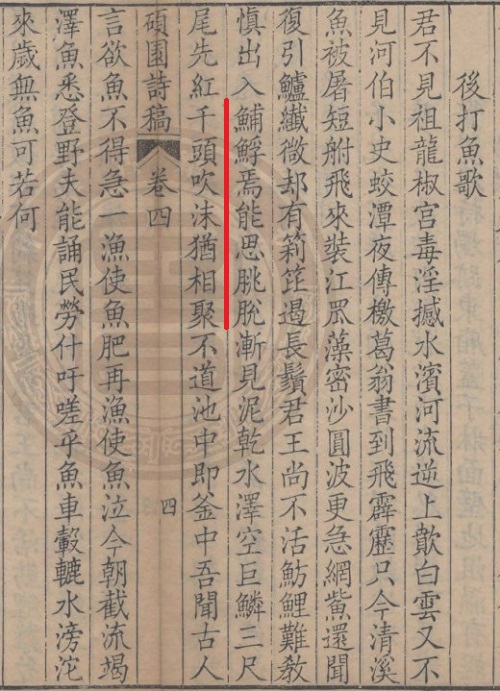 後打魚歌
君不見祖龍椒宫毒淫撼水濱河流逆上歕白雲又不
見河伯小史蛟潭夜傳檄葛翁書到飛霹靂只今清溪
魚被屠短舺飛來裝江罛藻密沙圓波更急網觜還聞
復引鱸纖微却有笓遏長鬚君王尚不活魴鯉難敎
愼出入鯆焉能思朓脫漸見泥乾水澤空巨鱗三尺
尾先紅千頭吹沫猶相聚不道池中即釜中吾聞古人
碩園詩稿 卷四 四
言欲魚不得急一漁使魚肥再漁使魚泣今朝截流竭
澤魚悉登野夫能誦民勞什吁嗟乎魚車轂轆水滂沱
來歲無魚可若何